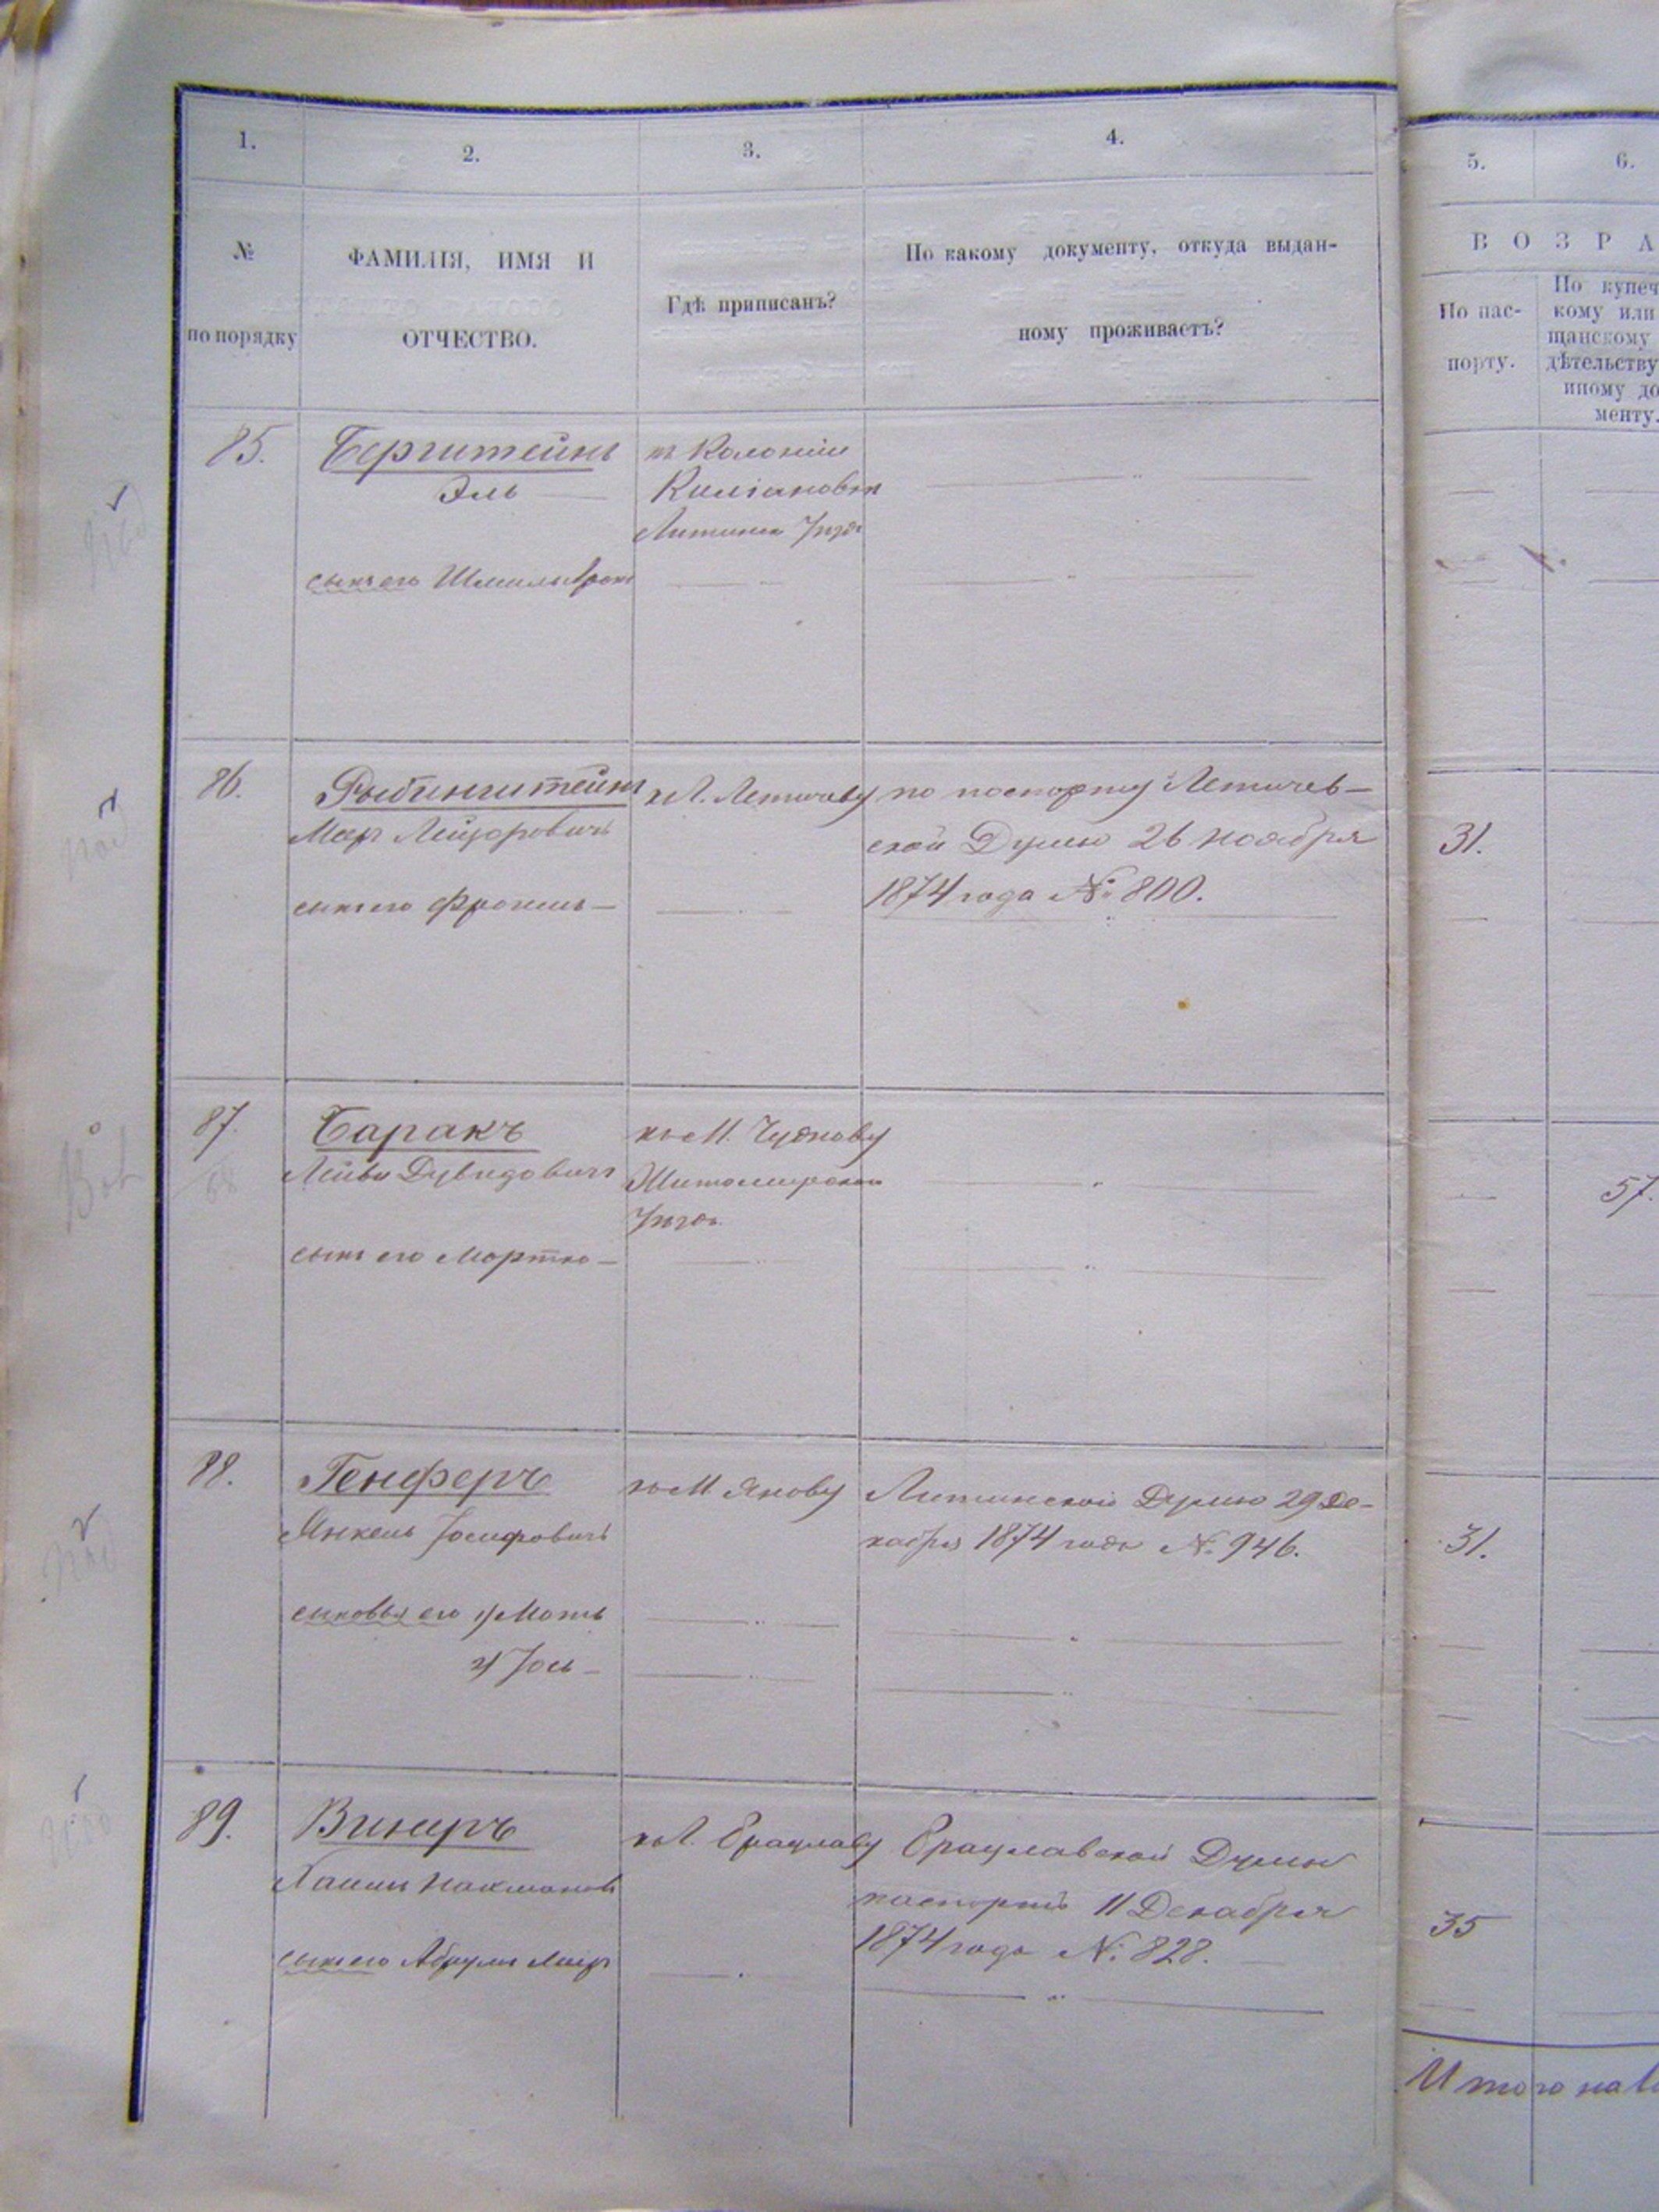 1.
2.
3.
4.
5.
6.
№
по порядку
ФАМИЛІЯ, ИМЯ И
ОТЧЕСТВО.
Гдѣ приписанъ?
По какому документу, откуда выдан-
ному проживаетъ?
В О З Р А
По пас-
порту.
По купеч
кому или
щанскому
дѣтельству
иному до
менту.
85.
Бергштейнъ
Эль
сынъ его Шмиль
къ Колоніи
Литинск Уѣзда
86.
Рыбингштейнъ
Меер Лейзоровичъ
сынъ его Фроимъ
къ Летичеву
по паспорту Летичев-
ской Думы 26 ноября
1874 года № 800.
31.
87.
68
Баракъ
Лейба Дувидовичъ
сынъ его Мортко
къ М. Чуднову
Житомирскаго
Уѣзда.
57.
88.
Генферъ
Янкель Іосифовичъ
сыновья его 1/ Моть
2/ Іось
къ М Янову
Литинской Думы 29 Де-
кабря 1874 года № 946.
31.
89.
Винеръ
Нахманов
сынъ его Абрумъ Меер
къ Брацлаву
Брацлавской Думы
паспортъ 11 Декабря
1874 года № 828.
35
Итого на